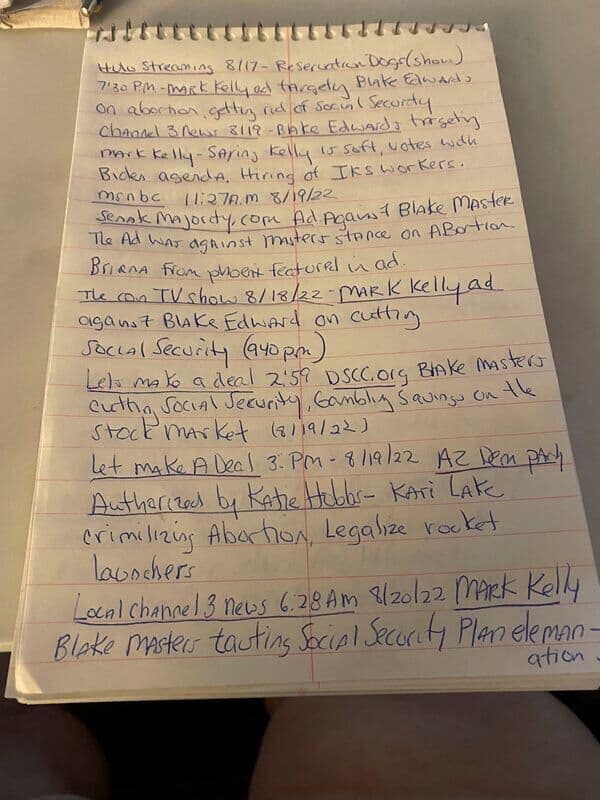 Hulu Streaming 8/17 - Reservation Dogs (show)
7:30 PM - Mark Kelly ad targety Blake Edwards
on abortion, getting rid of Social Security
Channel 3 News 8/19 - Blake Edwards targety
Mark Kelly - Saying Kelly is soft, votes with
Biden agenda, Hiring of IRS workers.
msnbc 11:27A.m 8/19/22
Senate Majority.com Ad Against Blake Master
The Ad was against masters stance on Abortion.
Briana From phoenix featured in ad.
The con TV show 8/18/22 - Mark Kelly ad
against Blake Edward on cutting
Social Security (940pm)
Lets make a deal 2:59 DSCC.org Blake Masters
cutting Social Security, Gambling Savings on the
Stock Market (8/19/22)
Let make A Deal 3: PM - 8/19/22 AZ Dem party
Authorized by Katie Hobbs - Kari Lake
crimilizing Abortion, Legalize rocket
launchers
Local channel 3 news 6:28 Am 8/20/22 Mark Kelly
Blake Masters tauting Social Security Plan eleman-
ation.